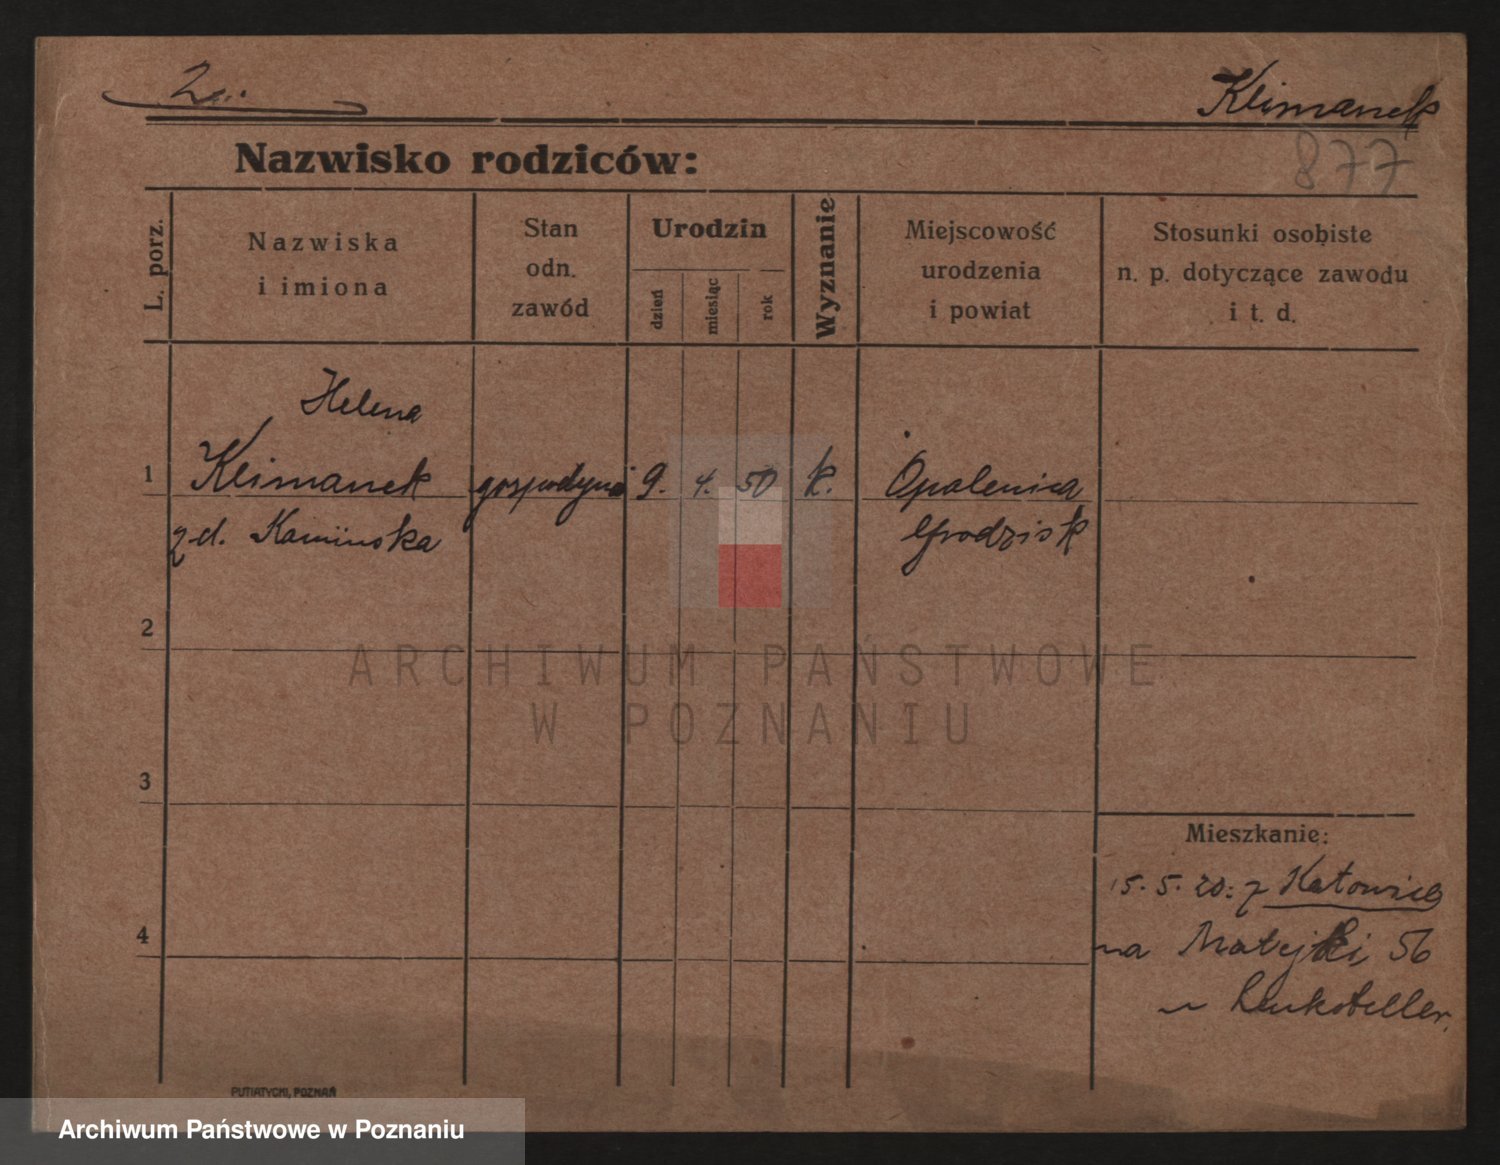 2.
Klimanek
877
Nazwisko rodziców:
L. porz.
Nazwiska
i imiona
Stan
odn.
zawód
Urodzin
dzień
miesiąc
rok
Wyznanie
Miejscowość
urodzenia
i powiat
Stosunki osobiste
n. p. dotyczące zawodu
i t. d.
Helena
1 Klimanek gospodyni 9. 4. 50 k. Opalenica
z d. Kamińska Grodzisk
2
3
4
Mieszkanie:
15. 5. 20: z Katowic
na Matejki 56
u
ARCHIWUM PAŃSTWOWE
W POZNANIU
PUTIATYCKI, POZNAŃ
Archiwum Państwowe w Poznaniu